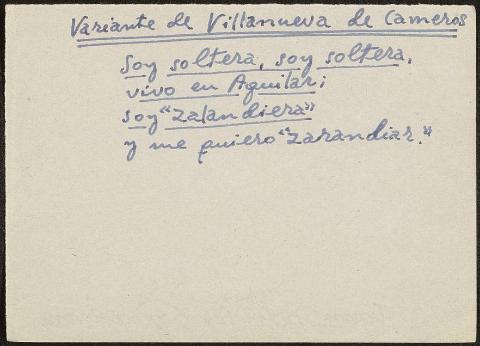 Variante de Villanueva de Cameros
Soy soltera, soy soltera,
vivo en Aguilar;
soy "zalandiera"
y me quiero "zarandiar."